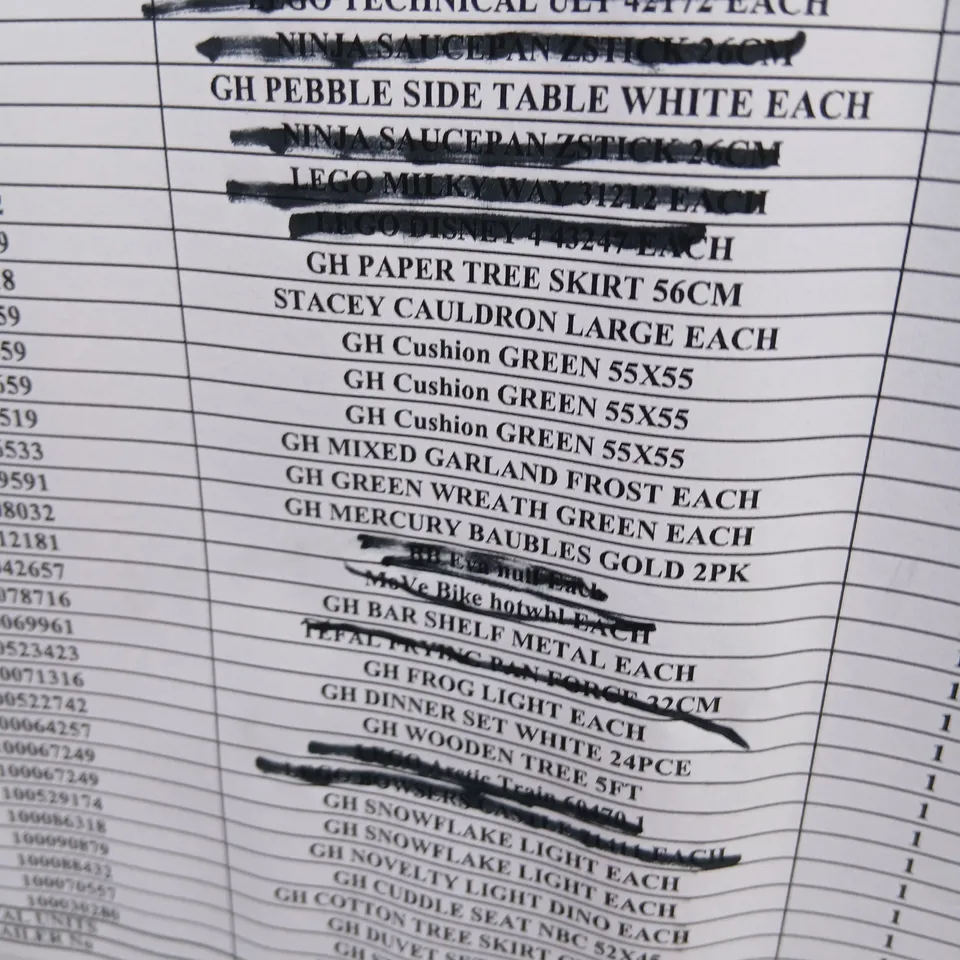 LEGO TECHNICAL ULT 42172 EACH
NINJA SAUCEPAN ZSTICK 26CM
GH PEBBLE SIDE TABLE WHITE EACH
NINJA SAUCEPAN ZSTICK 26CM
LEGO MILKY WAY 31212 EACH
LEGO DISNEY 4 43247 EACH
9 GH PAPER TREE SKIRT 56CM
8 STACEY CAULDRON LARGE EACH
59 GH Cushion GREEN 55X55
59 GH Cushion GREEN 55X55
659 GH Cushion GREEN 55X55
519 GH MIXED GARLAND FROST EACH
6533 GH GREEN WREATH GREEN EACH
9591 GH MERCURY BAUBLES GOLD 2PK
8032 BB Eva null Each
12181 MoVe Bike hotwhl EACH
42657 GH BAR SHELF METAL EACH 1
078716 TEFAL FRYING PAN FORCE 32CM 1
069961 GH FROG LIGHT EACH 1
0523423 GH DINNER SET WHITE 24PCE 1
0071316 GH WOODEN TREE 5FT 1
00522742 LEGO Arctic Train 60470 1 1
00064257 LEGO BOWSERS CASTLE EACH 1
100067249 GH SNOWFLAKE LIGHT EACH 1
100067249 GH SNOWFLAKE LIGHT EACH 1
100529174 GH NOVELTY LIGHT DINO EACH 1
100086318 GH CUDDLE SEAT NBC 52X45 1
100090879 GH COTTON TREE SKIRT
100088432 GH DUVET
100070557 GH
100030280
AL UNITS
AILER No